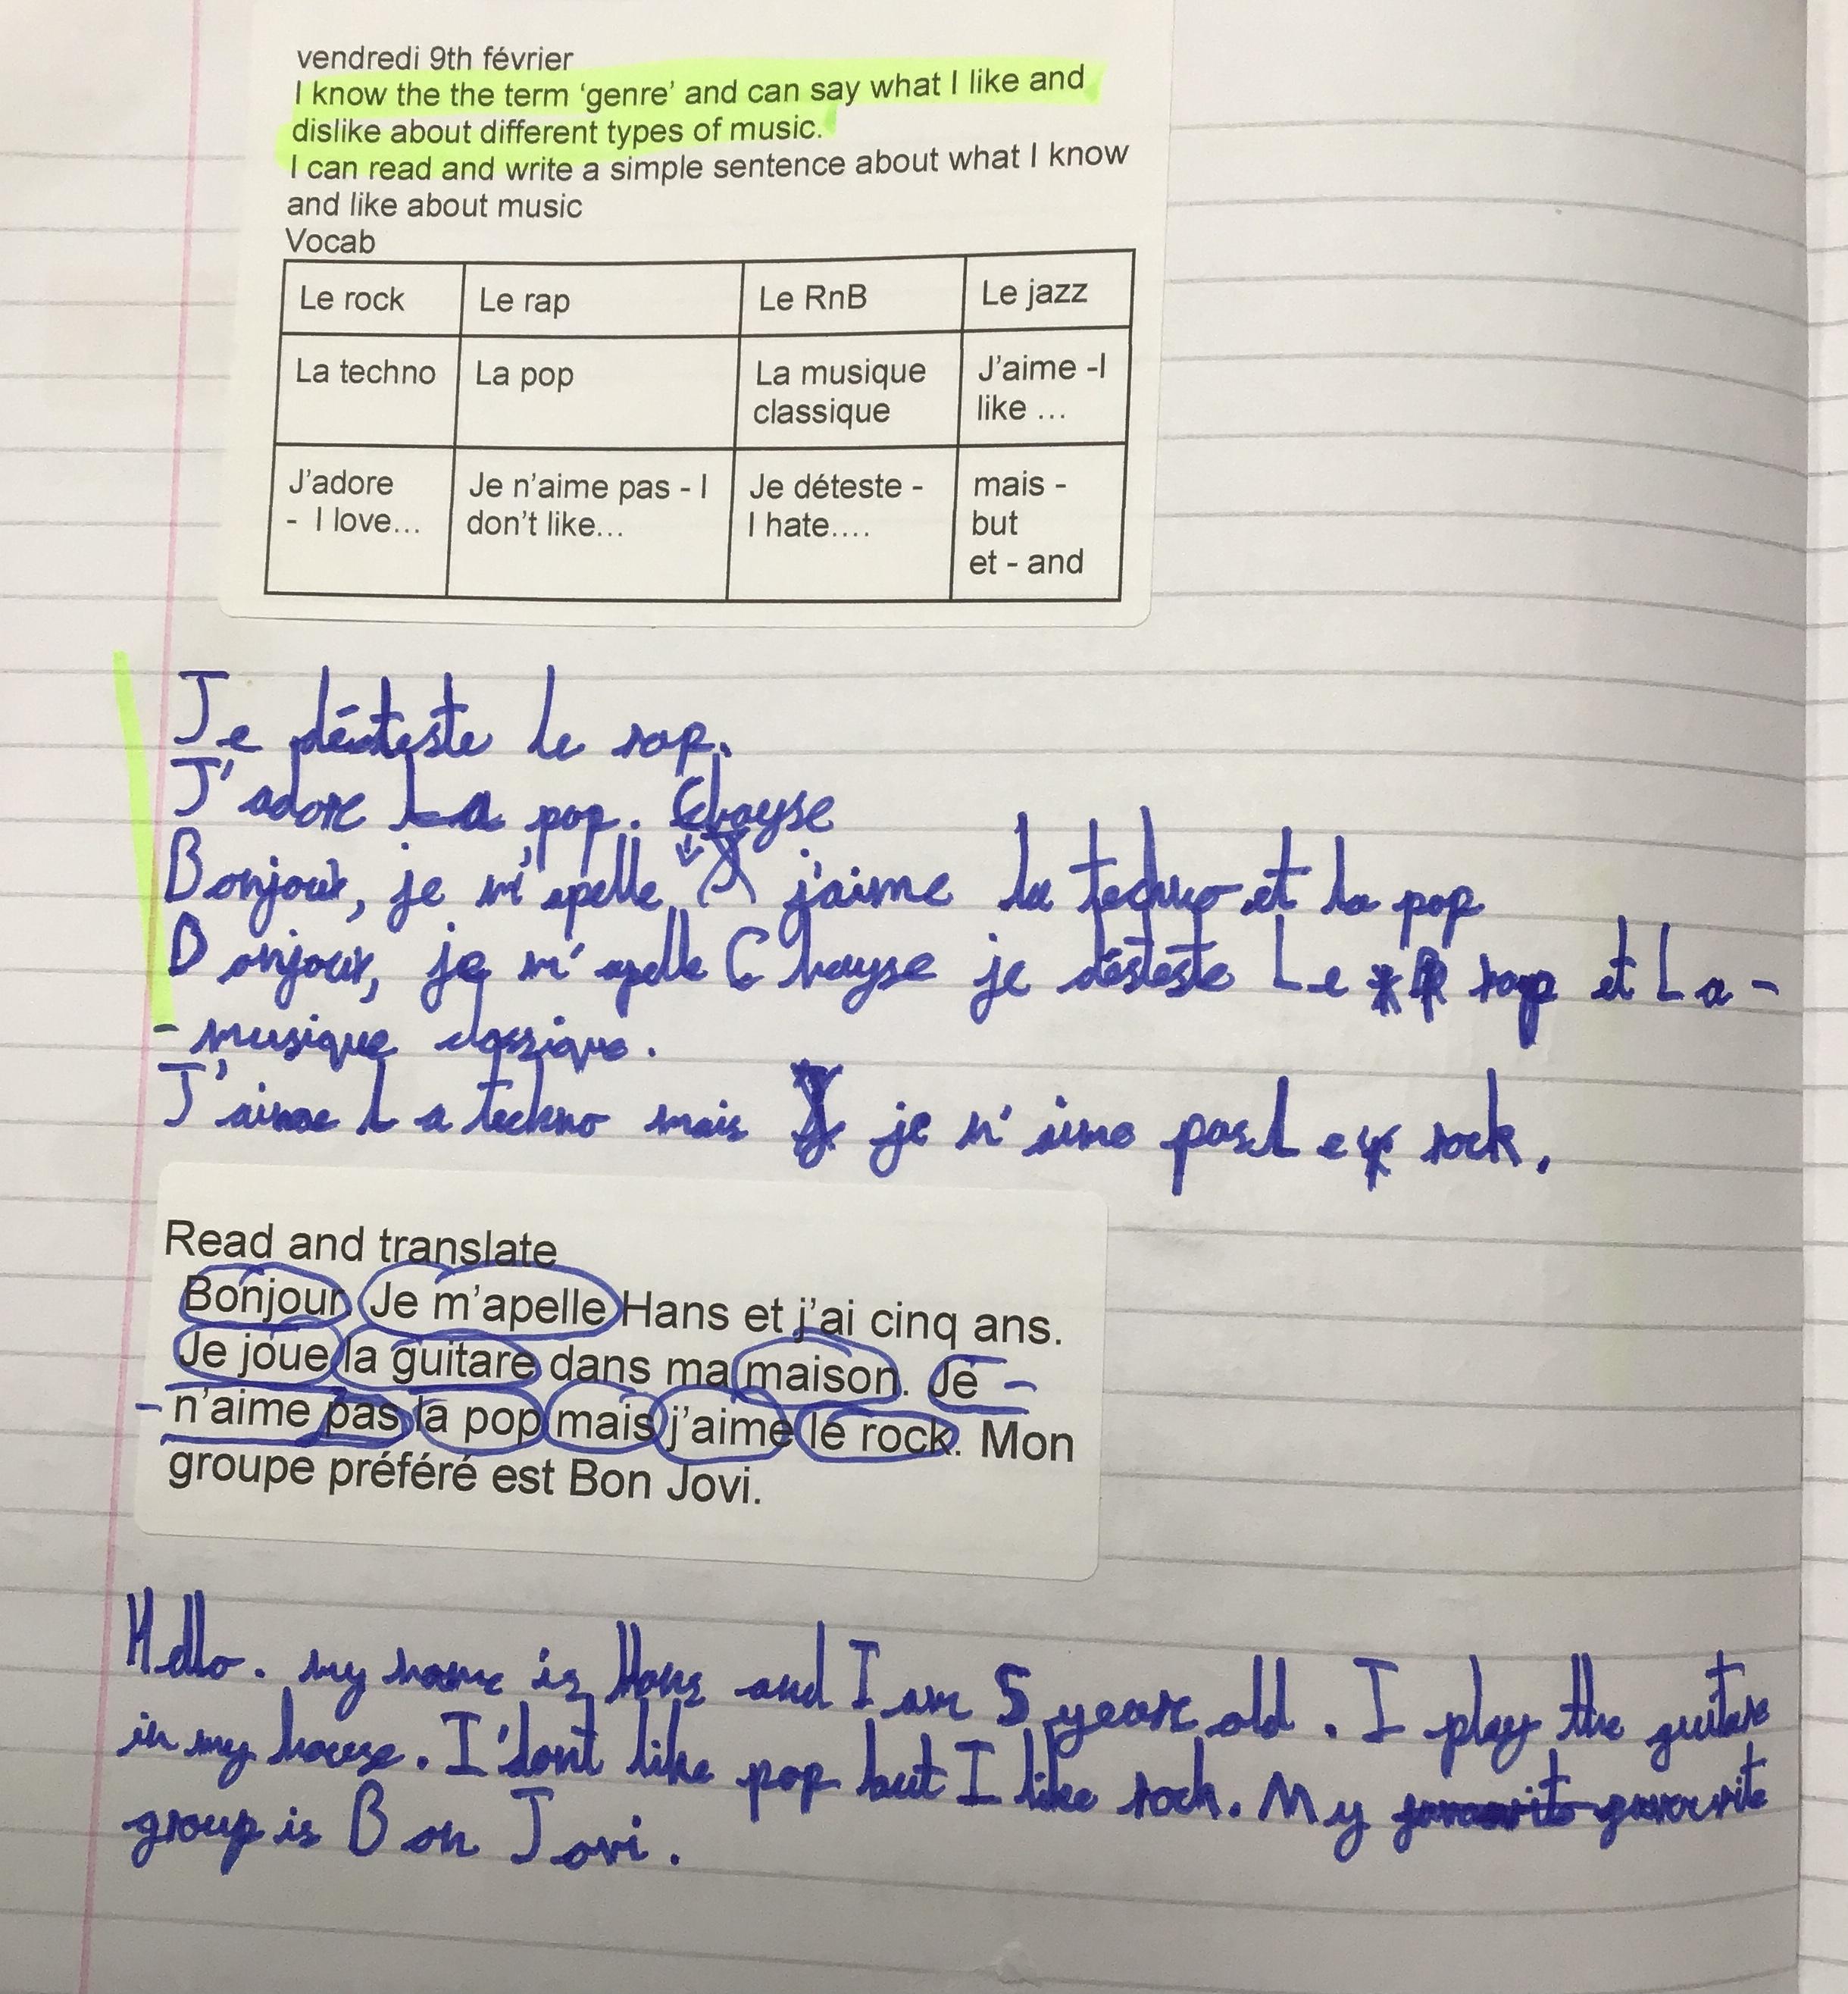 vendredi 9th février
I know the the term ‘genre’ and can say what I like and
dislike about different types of music.
I can read and write a simple sentence about what I know
and like about music
Vocab
Le rock Le rap Le RnB Le jazz
La techno La pop La musique classique J’aime -I like …
J’adore - I love… Je n’aime pas - I don’t like… Je déteste - I hate…. mais - but et - and
Je déteste le rap.
J'adore La pop. Chayse
Bonjour, je m'apelle j'aime la techno et la pop
Bonjour, je m'apelle Chayse je désteste Le rap et La -
- musique classique.
J'aime La techno mais je n'aime pas Le rock.
Read and translate
Bonjour Je m’apelle Hans et j’ai cinq ans.
Je joue la guitare dans ma maison. Je -
- n’aime pas la pop mais j’aime le rock. Mon
groupe préféré est Bon Jovi.
Hello. my name is Hans and I am 5 years old. I play the guitare
in my house. I'dont like pop but I like rock. My
group is Bon Jovi.